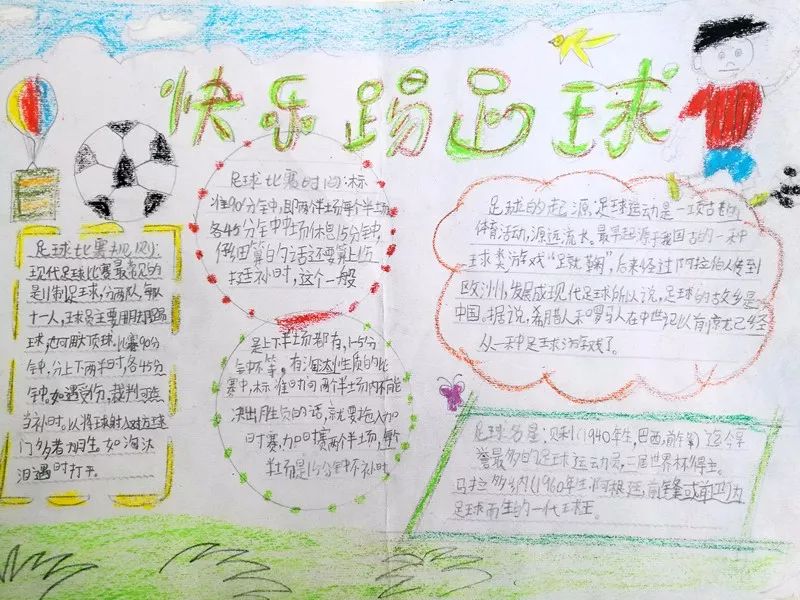 快乐踢足球
足球比赛规则:
现代足球比赛最常见的
是11制足球,分两队,每队
十一人,球员主要用脚踢
球,也可用头顶球。比赛90分
钟,分上下两半时,各45分
钟。如遇受伤,裁判可适
当补时。以将球射入对方球
门多者为胜。如淘汰
泪遇时打平。
足球比赛时间:标
准90分钟,即两个半场每个半场
各45分钟中场休息15分钟,
伤
廷补时,这个一般
是上下半场都有,1-5分
钟不等。有淘汰性质的比
赛中,标准时间两个半场内不能
决出胜负的话,就要拖入加
时赛,加时赛两个半场,每
半场是15分钟不补时
足球的起源:足球运动是一项古老的
体育活动,源远流长。最早起源于我国古的一种
球类游戏“足就鞠”,后来经过阿拉伯人传到
欧洲,发展成现代足球所以说,足球的故乡是
中国。据说,希腊人和罗马人在中世纪以前就已经
从一种足球游戏了。
足球名星:贝利(1940年生,巴西,前锋)迄今
誉最多的足球运动员,三届世界杯得主。
马拉多纳(1960年生,阿根廷,前锋或前卫)为
足球而生的一代球王。